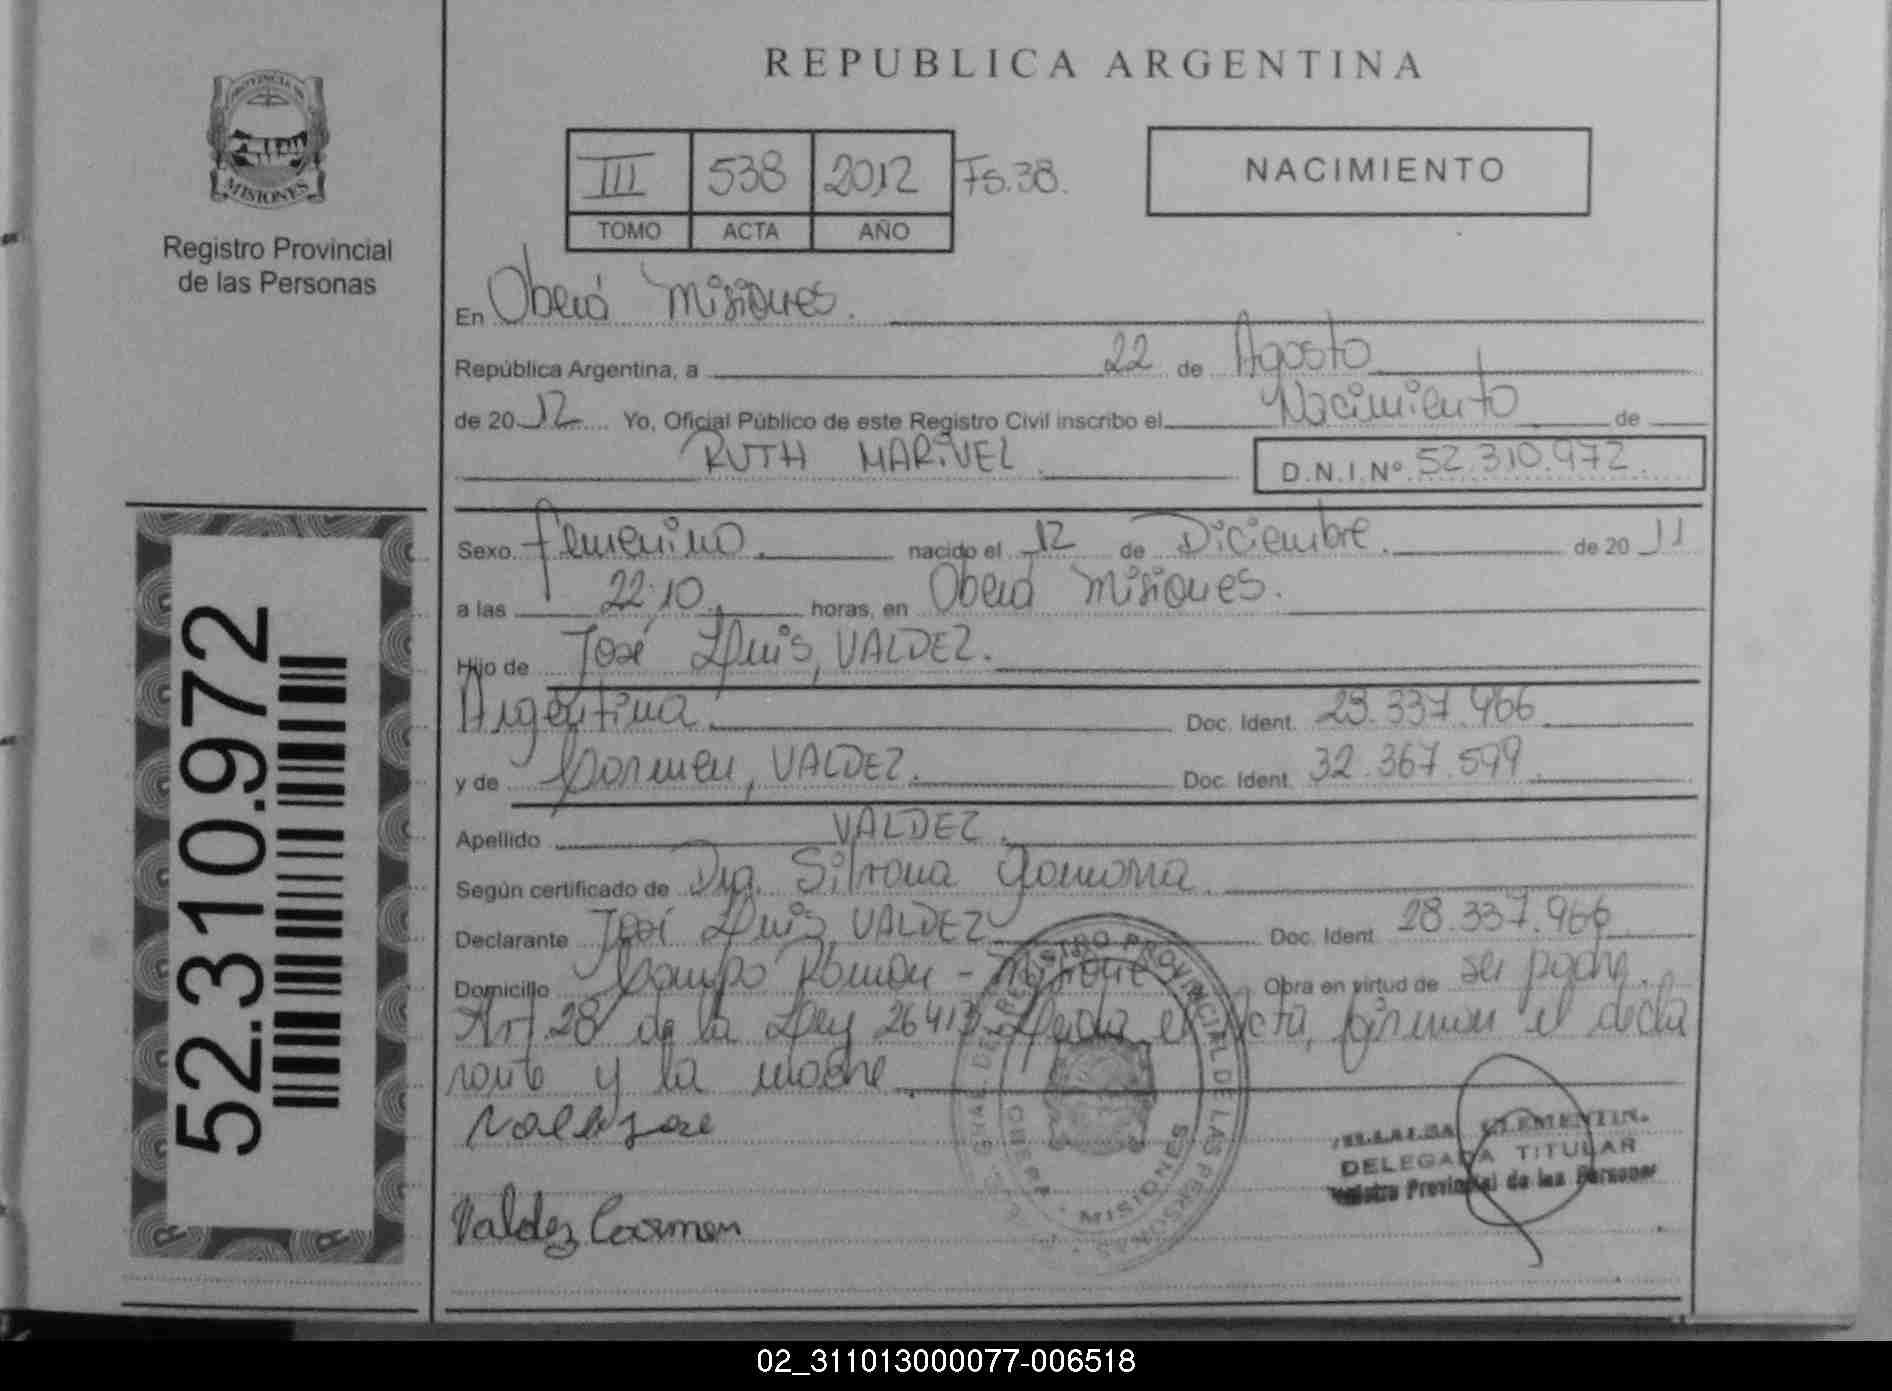 REPUBLICA ARGENTINA
PROVINCIA DE
MISIONES
Registro Provincial
de las Personas
III 538 2012 Fs.38.
TOMO ACTA AÑO
NACIMIENTO
En Oberá Misiones.
República Argentina, a 22 de Agosto
de 2012 Yo, Oficial Público de este Registro Civil inscribo el Nacimiento de
RUTH MARIVEL
D.N.I.Nº 52.310.972
Sexo Femenino. nacido el 12 de Diciembre. de 2011
a las 22:10. horas, en Oberá Misiones.
Hijo de José Luis, VALDEZ.
Argentina. Doc. Ident. 28.337.966
y de Carmen, VALDEZ. Doc. Ident. 32.367.599
Apellido VALDEZ.
Según certificado de Silvana
Declarante José Luis VALDEZ Doc. Ident. 28.337.966
Domicilio Campo Ramon - Misiones Obra en virtud de ser padre.
Art. 28 de la Ley 26413. Leida el Acta, firman el decla
rante y la madre.
Valdez Carmen
REGISTRO PROVINCIAL DE LAS PERSONAS
MISIONES
DELEGADA TITULAR
Registro Provincial de las Personas
52.310.972
02_311013000077-006518